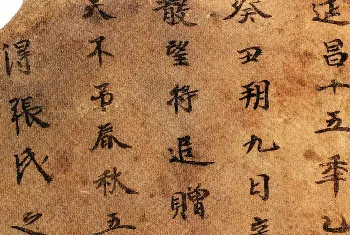 延昌十五年乙
癸丑朔九日辛
散望将追贈
天不弔春秋五
淂張氏之